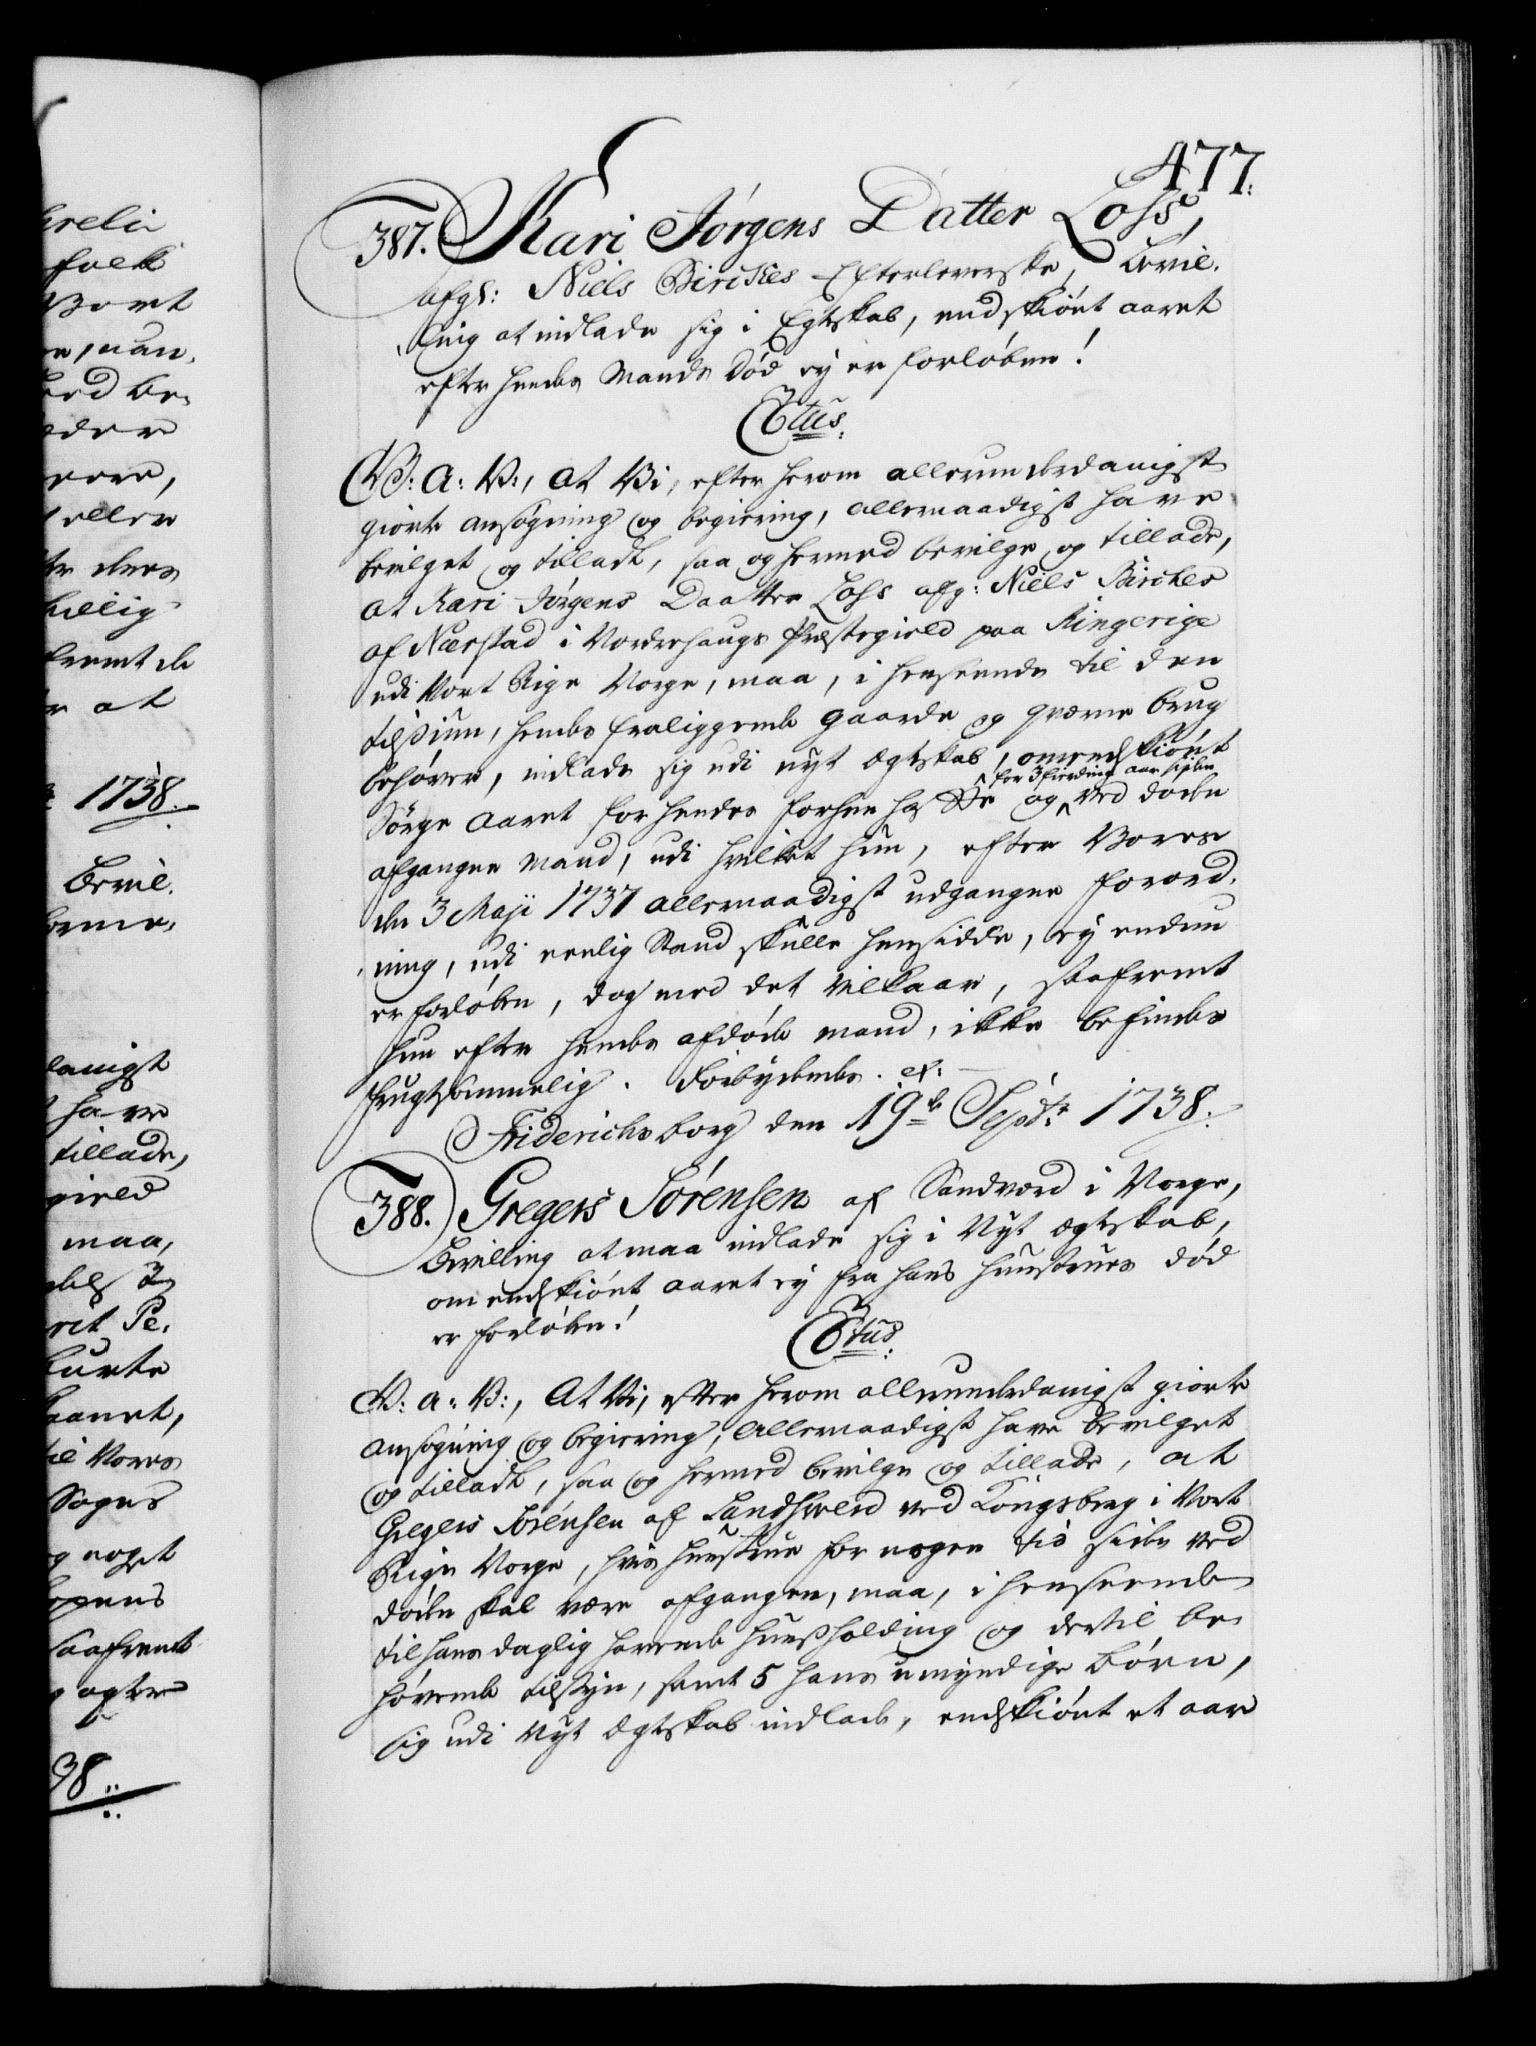 477.
387. Kari Jørgens Datter Loss,
afgl: Niels Birches Efterleverske, Bevil-
ling at indlade sig i Egteskab, endskiønt aaret
efter hendes Mands Død ey er forløben!
Ctus.
V: A: V:, At Vi, efter herom allerunderdanigst
giorte ansøgning og begiering, allernaadigst have
bevilget og tilladt, saa og hermed bevilge og tillade,
at Kari Jørgens Daatter Loss afg: Niels Birches
af Nærstad i Norderhougs Præstegield paa Ringerige
udi Vort Rige Norge, maa, i henseende til den
tilsiun, hendes fraliggende gaarde og qværne brug
behøver, indlade sig udi nyt Ægteskab, omendskiønt
Sørge Aaret for hendes forhen og ved døden
for 3 fierding aar siden
afgangne Mand, udi hvilket hun, efter Vores
den 3 Maji 1737 allernaadigst udgangne Forord-
ning, udi eenlig Stand skulle hensidde, ey endnu
er forløben, dog med det Vilkaar, saafremt
hun efter hendes afdøde Mand, ikke befindes
frugtsommelig. Forbydendes. etc:
Friderichsborg den 19de Septr 1738.
388. Gregers Sørensen af Sandværd i Norge,
Bevilling at maa indlade sig i Nyt Ægteskab,
omendskiønt aaret ey fra hans hustrues død
er forløben!
Ctus.
V: A: V:, At Vi, efter herom allerunderdanigst giorte
ansøgning og begiering, allernaadigst have bevilget
og tilladt, saa og hermed bevilge og tillade, at
Gregers Sørensen af Sandsværd ved Kongsberg i Vort
Rige Norge, hvis hustrue for nogen tid siden ved
døden skal være afgangen, maa, i henseende
til hans daglig havende huusholding og dertil be-
høvende tilsyn, samt 5 hans umyndige børn,
sig udi Nyt Ægteskab indlade, endskiønt et aar